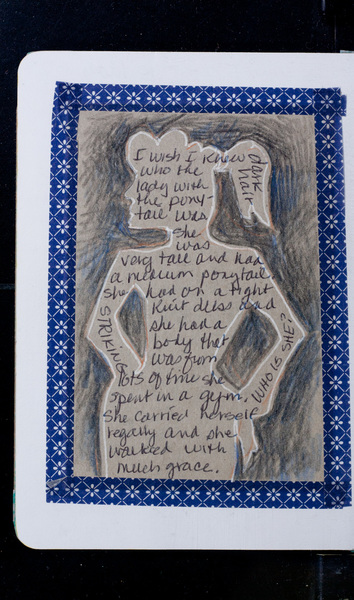 I wish I knew
who the
lady with
the pony-
tail was
she
was
very tall and had
a medium ponytail.
she had on a tight
Knit dress and
she had a
body that
was from
lots of time she
spent in a gym.
She carried herself
regally and she
walked with
much grace.
dark
hair
STRIKING
WHO IS SHE?